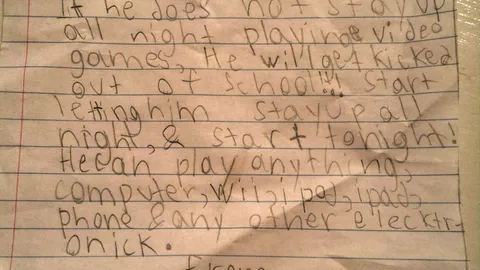 If he does not stayup
all night playing video
games, He will get kicked
out of school!!! start
letting him stayup all
night, & start tonight!
He can play anything,
computer, wii, ipod, ipad,
phone & any other elecktr-
onick.